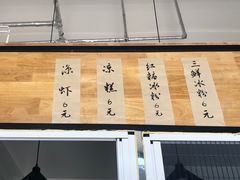 凉虾6元
凉糕6元
红糖冰粉6元
三鲜冰粉6元